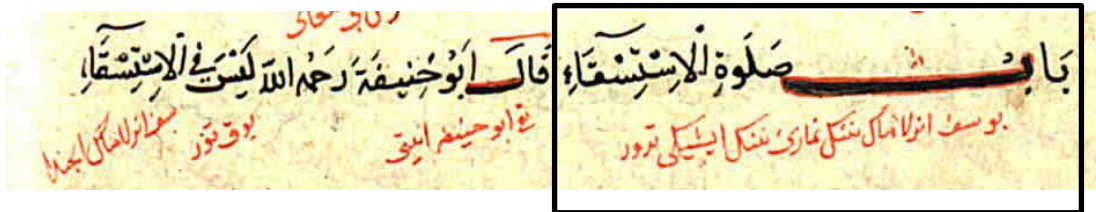 بَابُ صَلَوةِ الْاِسْتِسْقَاءِ قَالَ اَبُو حَنِيفَةَ رَحِمَهُ اللهُ لَيْسَ فِي الْاِسْتِسْقَاءِ
بو سف ازلاماك ننك نمازى ننك ايشيكى ترور ابو حنيفه ايتى يوق تور سف ازلاماك